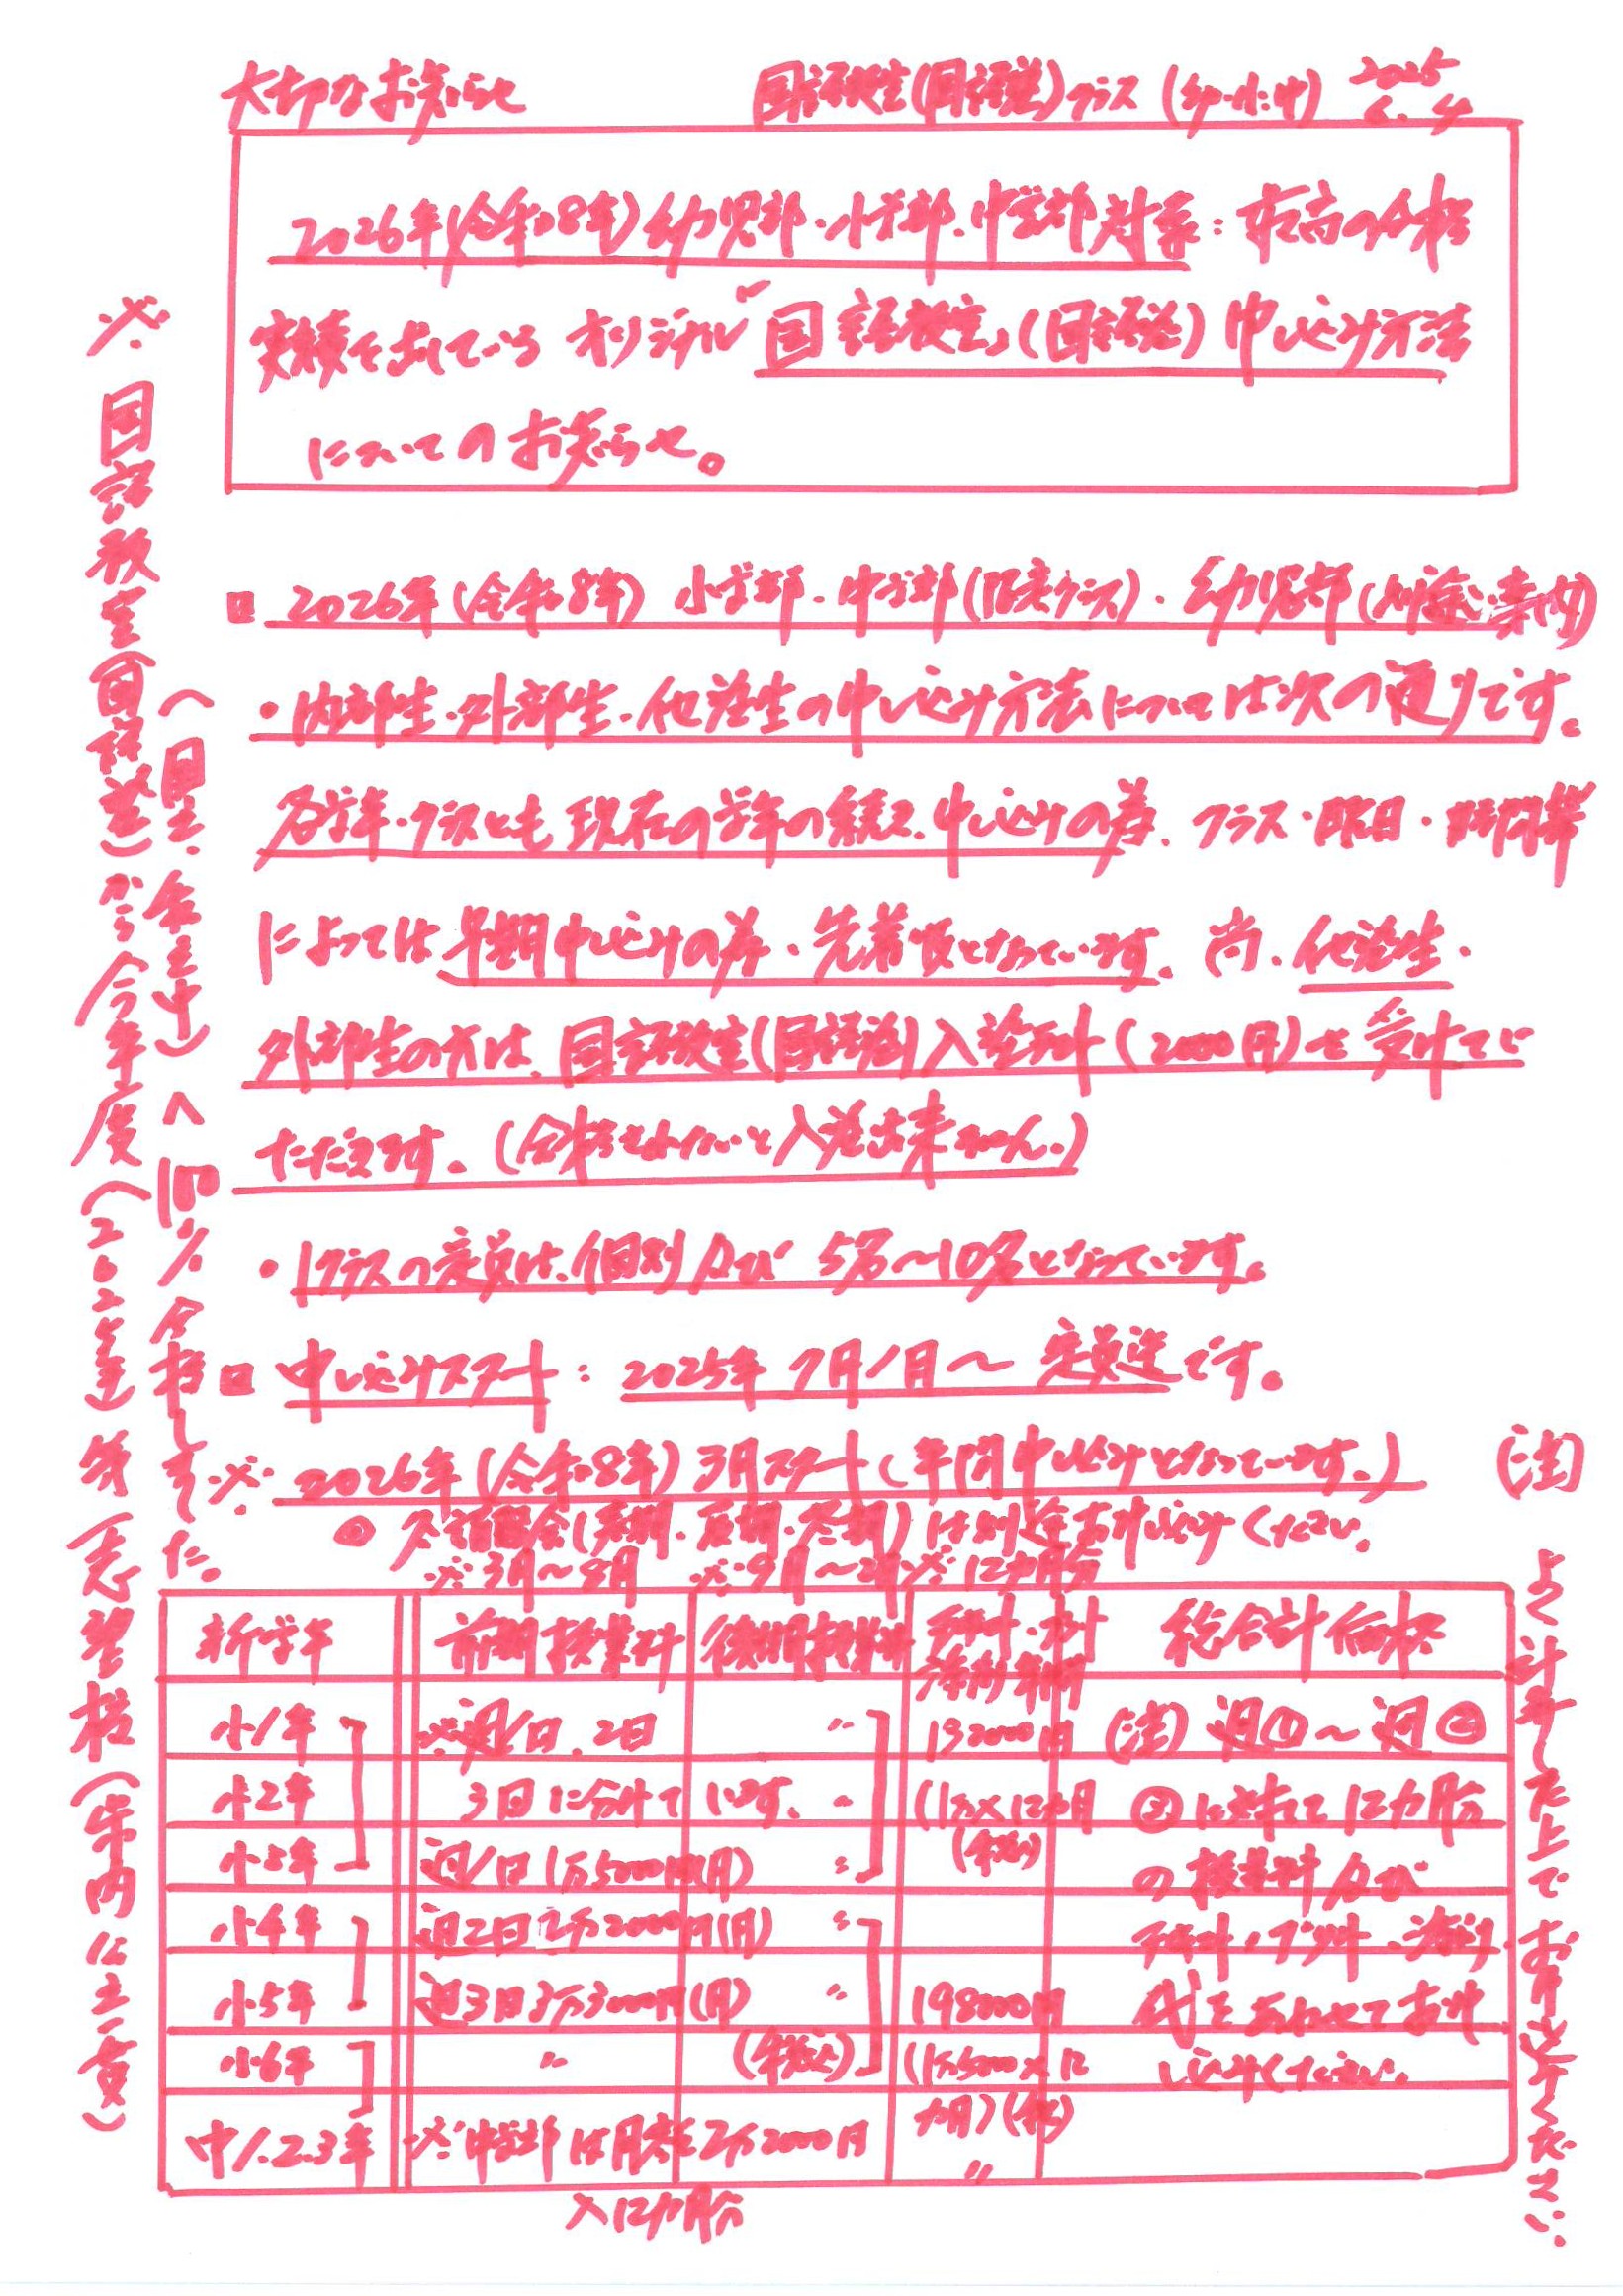 大切なお知らせ
国語教室(国語塾)クラス(幼・小・中) 2025 6.4
2026年(令和8年)幼児部・小学部・中学部対象：最高の合格
実績を出している オリジナル「国語教室」(国語塾)申し込み方法
についてのお知らせ。
□ 2026年(令和8年) 小学部・中学部(限定クラス)・幼児部(別途・案内)
・内部生・外部生・他塾生の申し込み方法については次の通りです。
各学年・クラスとも現在の学年の続き、申し込みの為、クラス・曜日・時間帯
によっては早期申し込みの為・先着順となっています。尚、他塾生・
外部生の方は、国語教室(国語塾)入塾テスト(2000円)を受けてい
ただきます。(合格されないと入塾出来ません。)
・1クラスの定員は、個別及び 5名〜10名となっています。
□ 申し込みスタート：2025年 7月1日〜 定員迄です。
※ 2026年(令和8年) 3月スタート(年間申し込みとなっています。)
◎ 各講習会(春期・夏期・冬期)は別途お申し込みください。
※3月〜8月 ※9月〜2月 ※12カ月分
新学年 前期授業料 後期授業料 総合計価格
小1年 ※週1日、2日 〃 132000円 (注) 週①〜週②
小2年 3日に分けて います。 〃 (1万×12カ月 ③に応じて12カ月分
小3年 週1日 1万5000円(月) 〃 (税込) の授業料及び
小4年 週2日 2万2000円(月) 〃
小5年 週3日 3万3000円(月) 〃 198000円 代をあわせてお申
小6年 〃 (税込) (1万5000×12 し込みください。
カ月)(税込)
中1.2.3年 ※中学部は月額 2万2000円 〃
×12カ月分
(注) よく計算した上でお申込みください。
※国語教室(国語塾)から今年度(2025年)第一志望校(案内に主一貫)
(国立・私立中)へ100%合格しました。